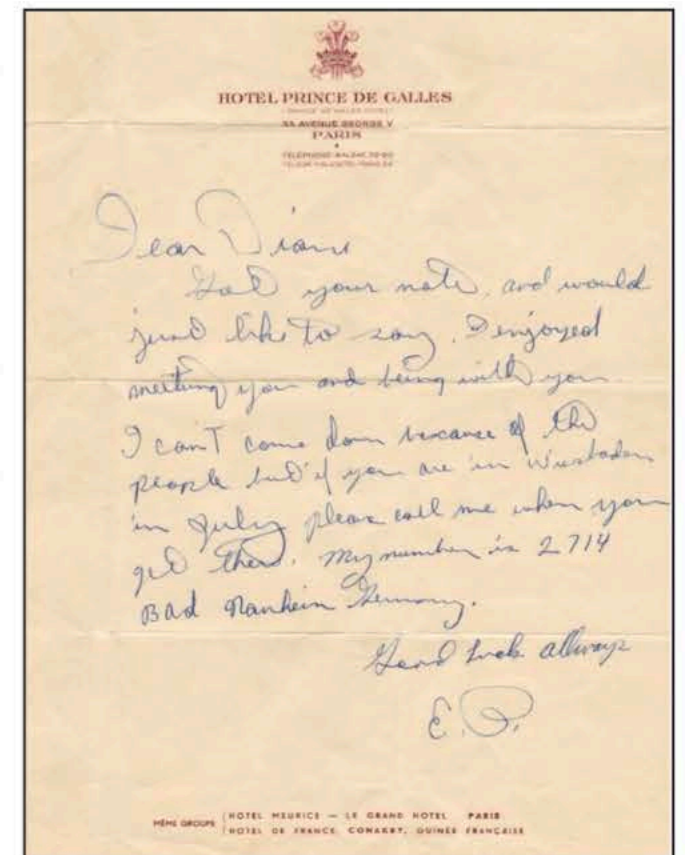 HOTEL PRINCE DE GALLES
33, AVENUE GEORGE V
PARIS
Dear Diane
Got your note, and would
just like to say, I enjoyed
meeting you and being with you
I can't come down because of the
people but if you are in Wiesbaden
in July please call me when you
get there. My number is 2714
Bad Nauheim Germany.
Good luck allways
E.P.
MÊME GROUPE
HOTEL MEURICE — LE GRAND HOTEL PARIS
HOTEL DE FRANCE, CONAKRY, GUINÉE FRANÇAISE